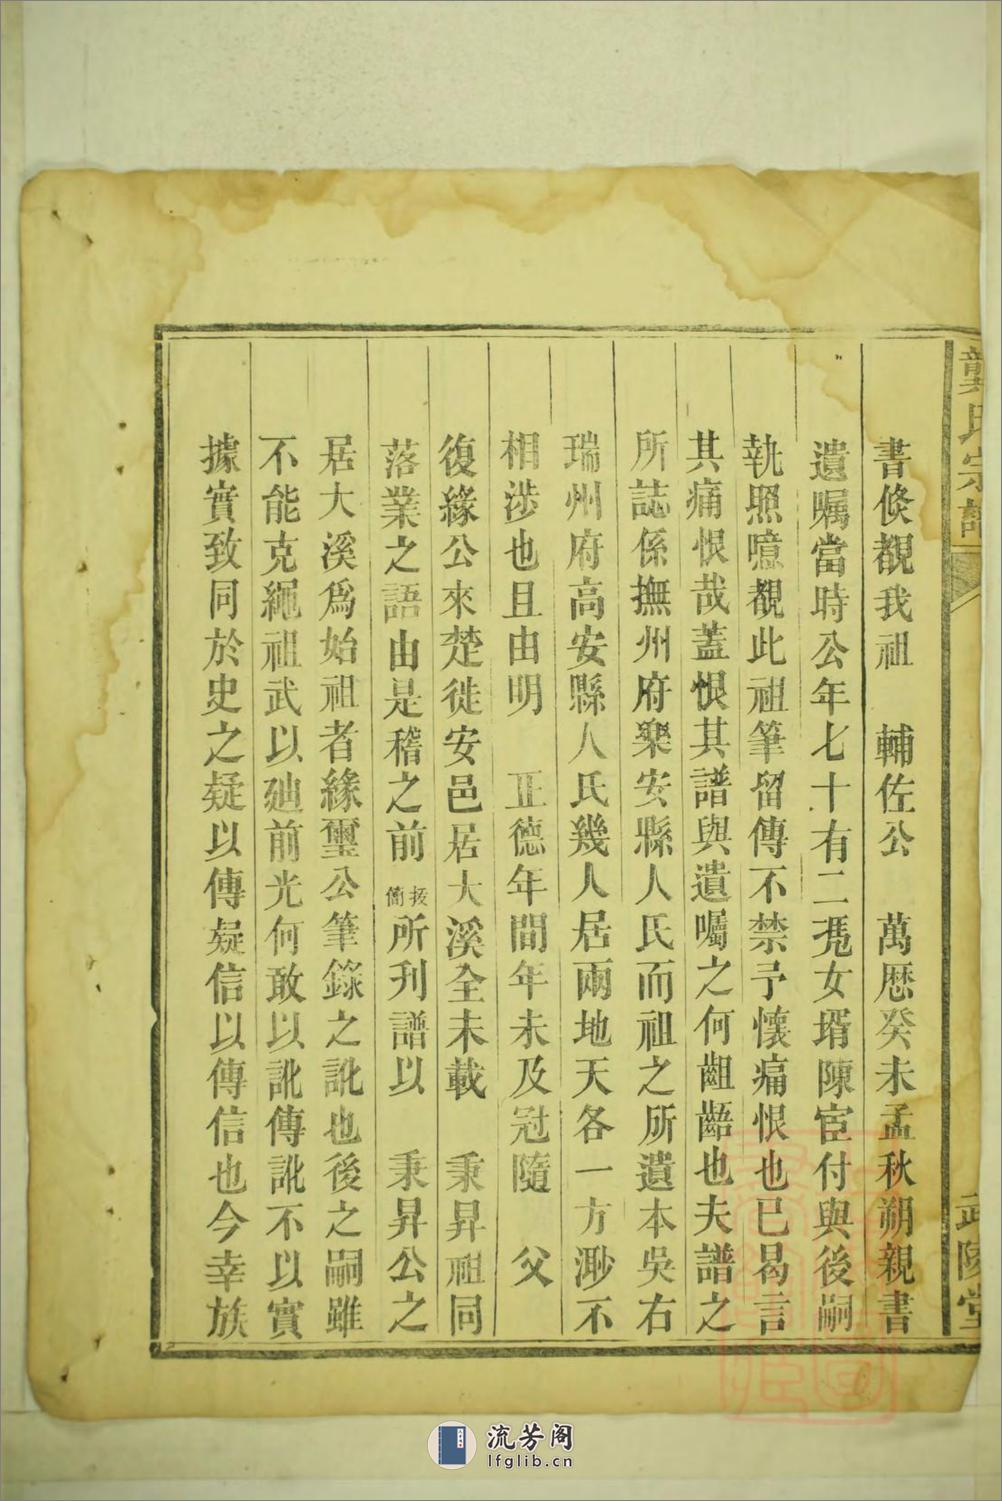 龔氏宗譜
武陵堂
書倏覩我祖　輔佐公　萬厯癸未孟秋朔親書
遺嘱當時公年七十有二凴女壻陳宦付與後嗣
執照噫覩此祖筆留傳不禁予懷痛恨也已曷言
其痛恨哉蓋恨其譜與遺囑之何齟齬也夫譜之
所誌係撫州府樂安縣人氏而祖之所遺本吳右
瑞州府高安縣人氏幾人居兩地天各一方渺不
相涉也且由明　正德年間年未及冠隨　父
復緣公來楚徙安邑居大溪全未載　秉昇祖同
落業之語由是稽之前　所刊譜以　秉昇公之
居大溪爲始祖者緣璽公筆錄之訛也後之嗣雖
不能克繩祖武以廸前光何敢以訛傳訛不以實
據實致同於史之疑以傳疑信以傳信也今幸族
流芳阁
lfglib.cn